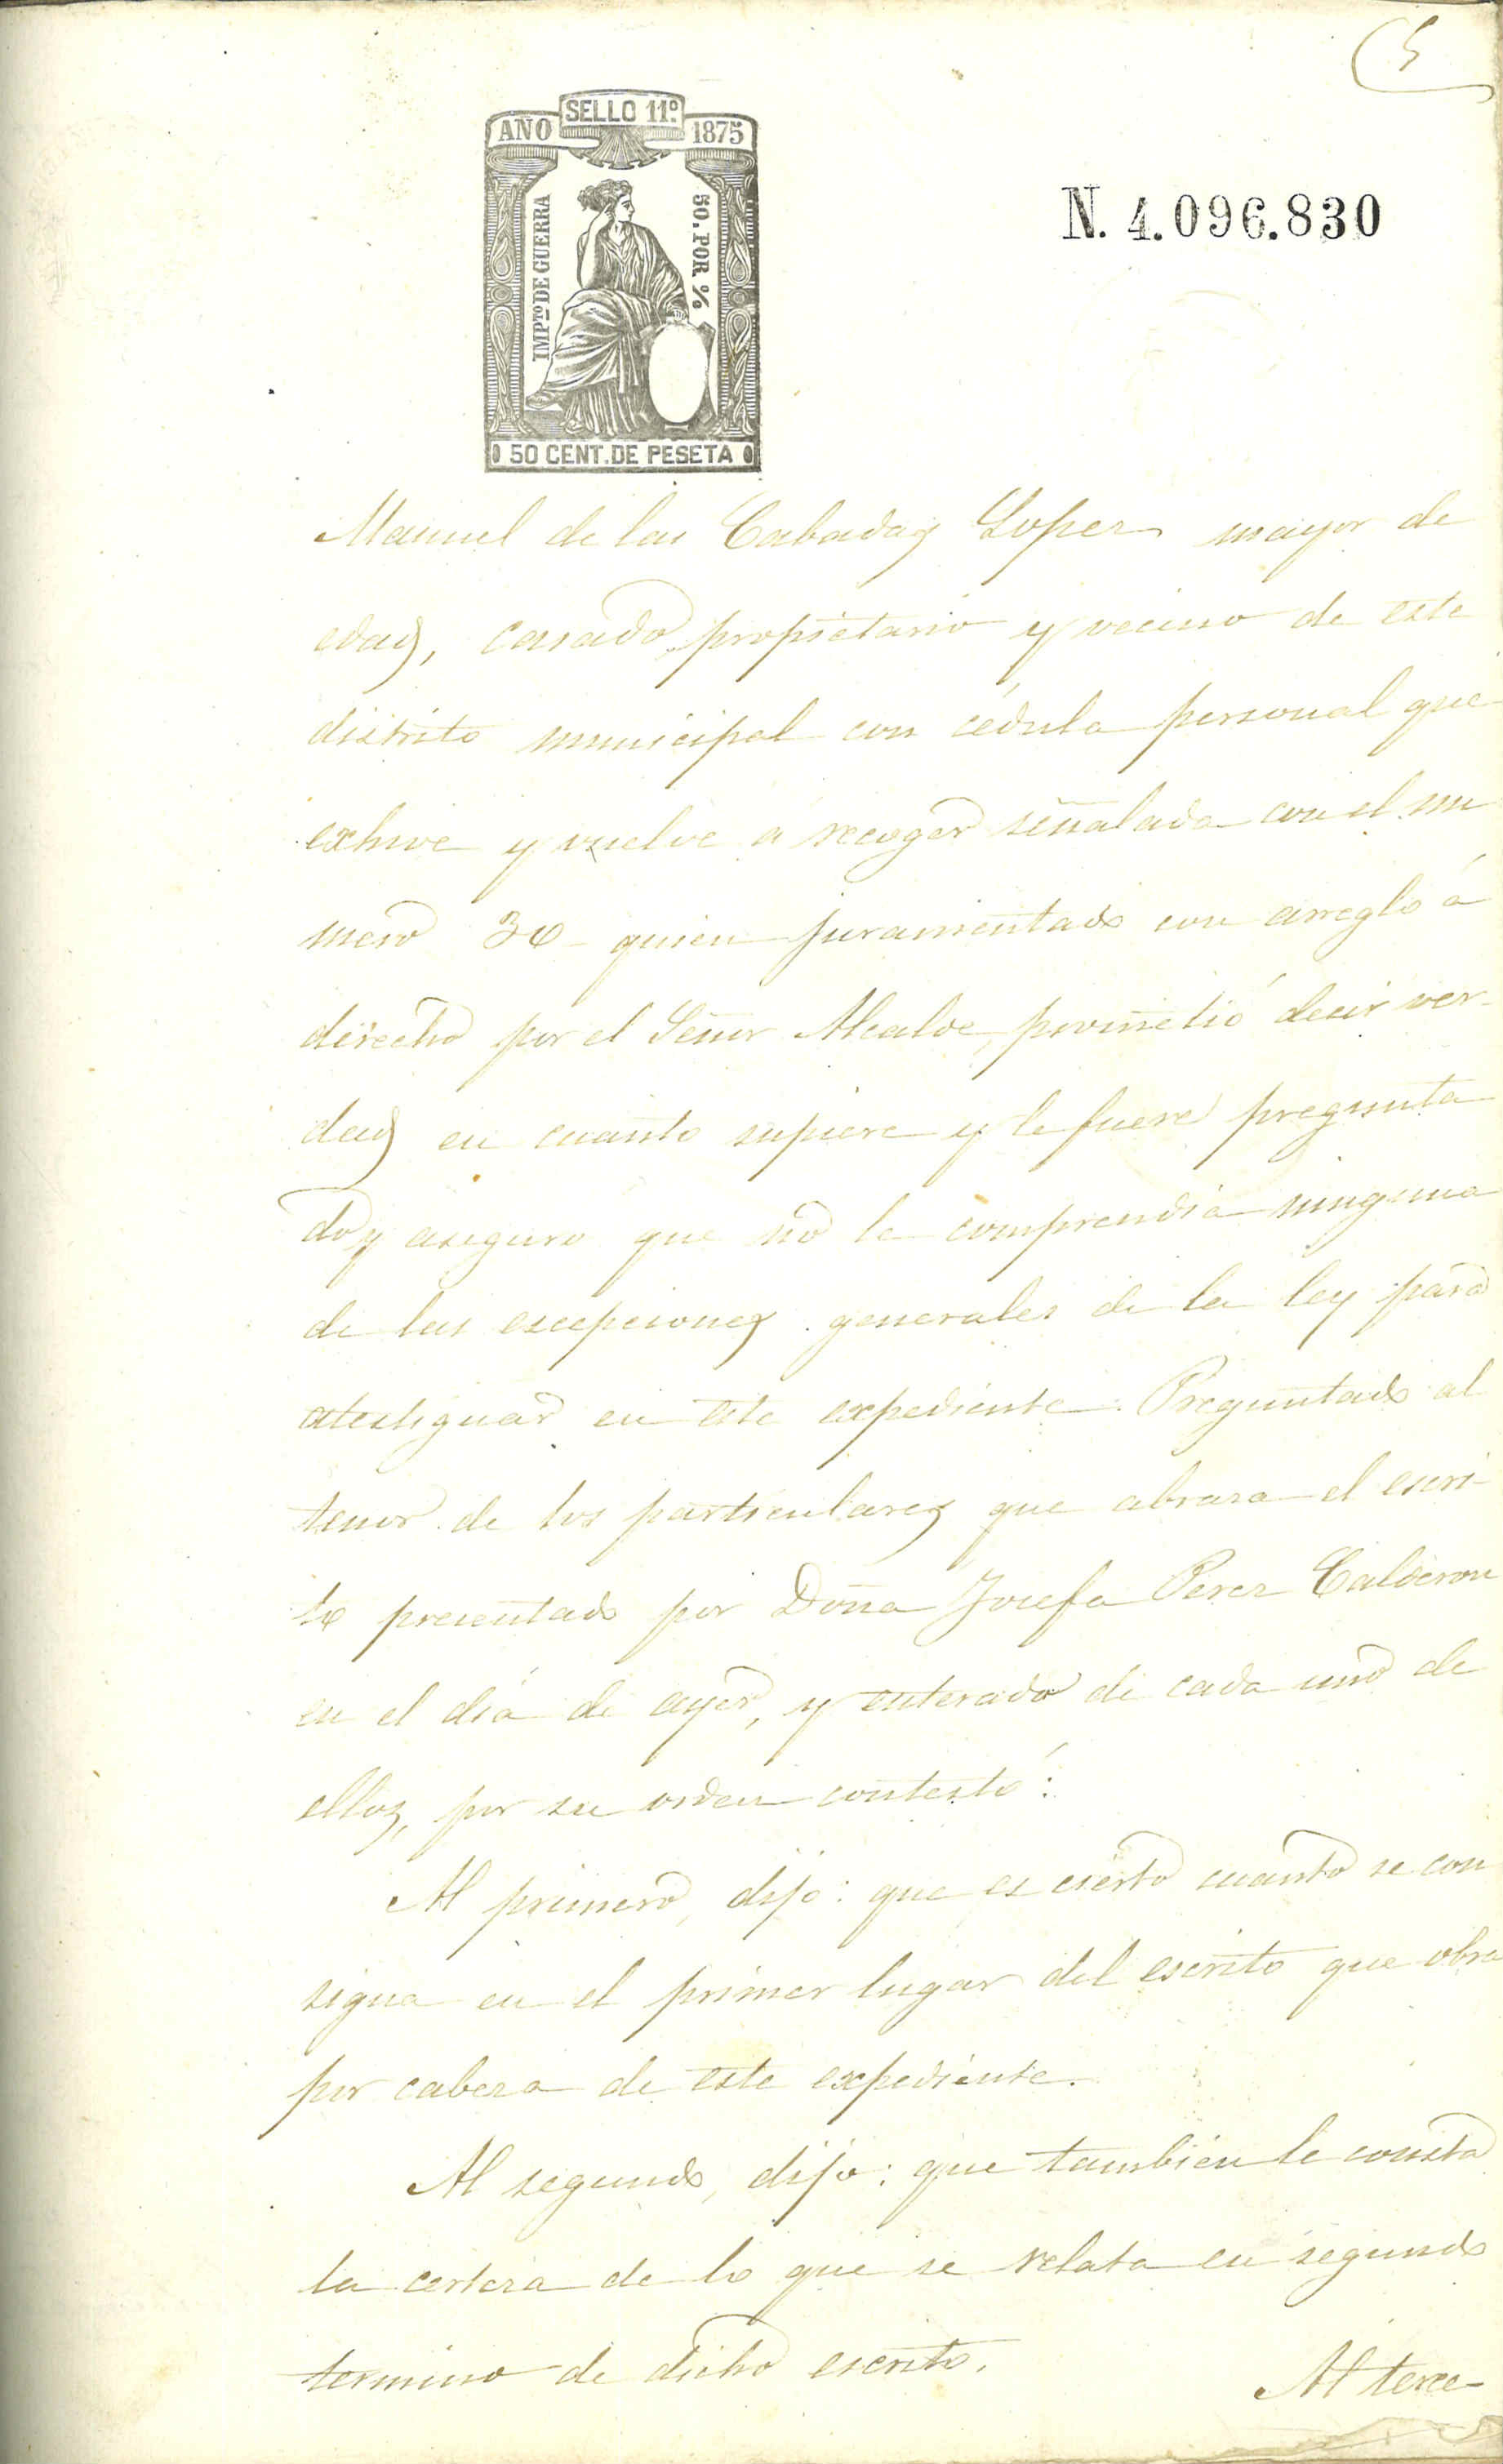 5
SELLO 11º
AÑO 1875
IMPTO DE GUERRA
50. POR %
50 CENT. DE PESETA
N. 4.096.830
Manuel de las Cabadas Lopez mayor de
edad, casado, propietario y vecino de este
distrito municipal con cédula personal que
exhive y vuelve á recoger señalada con el nu
mero 30 quien juramentado con arreglo á
derecho por el Señor Alcalde, prometió decir ver-
dad en cuanto supiere y le fuere pregunta
do y aseguro que no le comprendia ninguna
de las escepciones generales de la ley para
atestiguar en este expediente. Preguntado al
tenor de los particulares que abraza el escri-
to presentado por Doña Josefa Perez Calderon
en el diá de ayer, y enterado de cada uno de
ellos, por su orden contestó:
Al primero, dijo: que es cierto cuanto se con
signa en el primer lugar del escrito que obra
por cabeza de este expediente.
Al segundo, dijo: que tambien le consta
la certeza de lo que se relata en segundo
termino de dicho escrito.
Al terce-